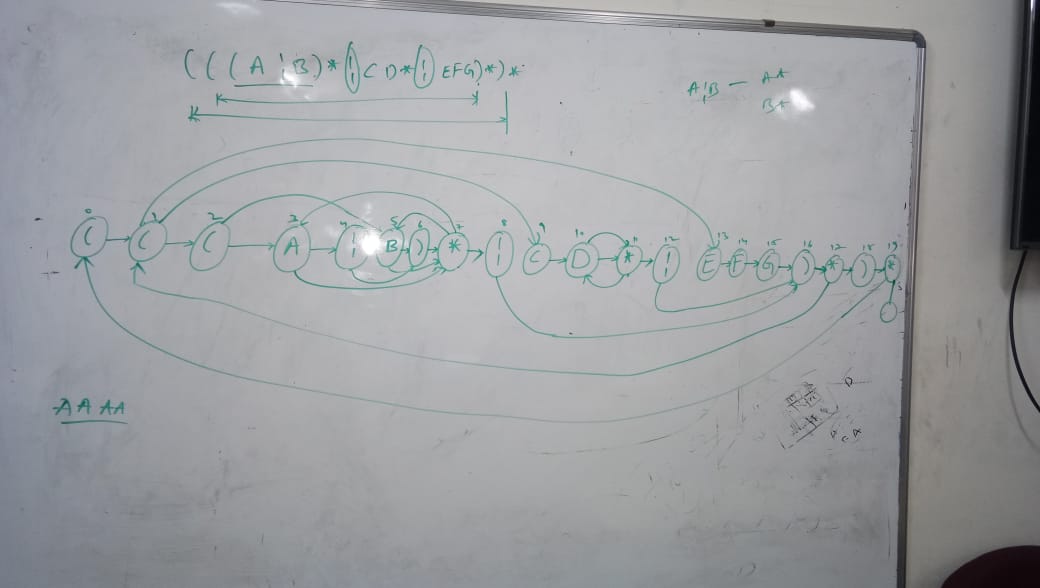 (((A|B)*|CD*|EFG)*)*
A|B - A*
B*
0 1 2 3 4 5 6 7 8 9 10 11 12 13 14 15 16 17 18 19
( ( ( A | B ) * | C D * | E F G ) * ) *
AAAA